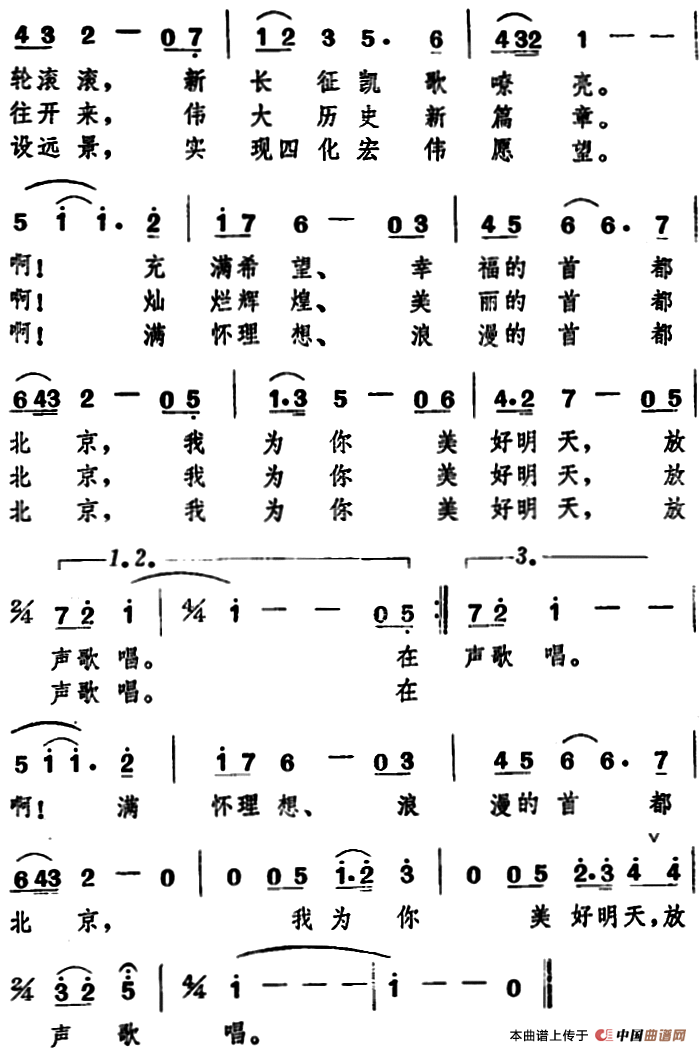 4 3 2 — 0 7 | 1 2 3 5. 6 | 4 3 2 1 — —
轮滚滚, 新 长 征 凯 歌 嘹 亮。
往开来, 伟 大 历 史 新 篇 章。
设远景, 实 现四 化 宏 伟 愿 望。
5 1 1. 2 | 1 7 6 — 0 3 | 4 5 6 6. 7
啊! 充 满希 望、 幸 福的 首 都
啊! 灿 烂辉 煌、 美 丽的 首 都
啊! 满 怀理 想、 浪 漫的 首 都
6 4 3 2 — 0 5 | 1.3 5 — 0 6 | 4.2 7 — 0 5
北 京, 我 为 你 美 好明天, 放
北 京, 我 为 你 美 好明天, 放
北 京, 我 为 你 美 好明天, 放
1. 2. 3.
2/4 7 2 1 | 4/4 1 — — 0 5 :| 7 2 1 — —
声歌 唱。 在 声歌 唱。
声歌 唱。 在
5 1 1. 2 | 1 7 6 — 0 3 | 4 5 6 6. 7
啊! 满 怀理 想、 浪 漫的 首 都
6 4 3 2 — 0 | 0 0 5 1.2 3 | 0 0 5 2.3 4 4 |
北 京, 我为 你 美 好明天,放
2/4 3 2 5 | 4/4 1 — — — | 1 — — 0
声 歌 唱。
本曲谱上传于 中国曲谱网